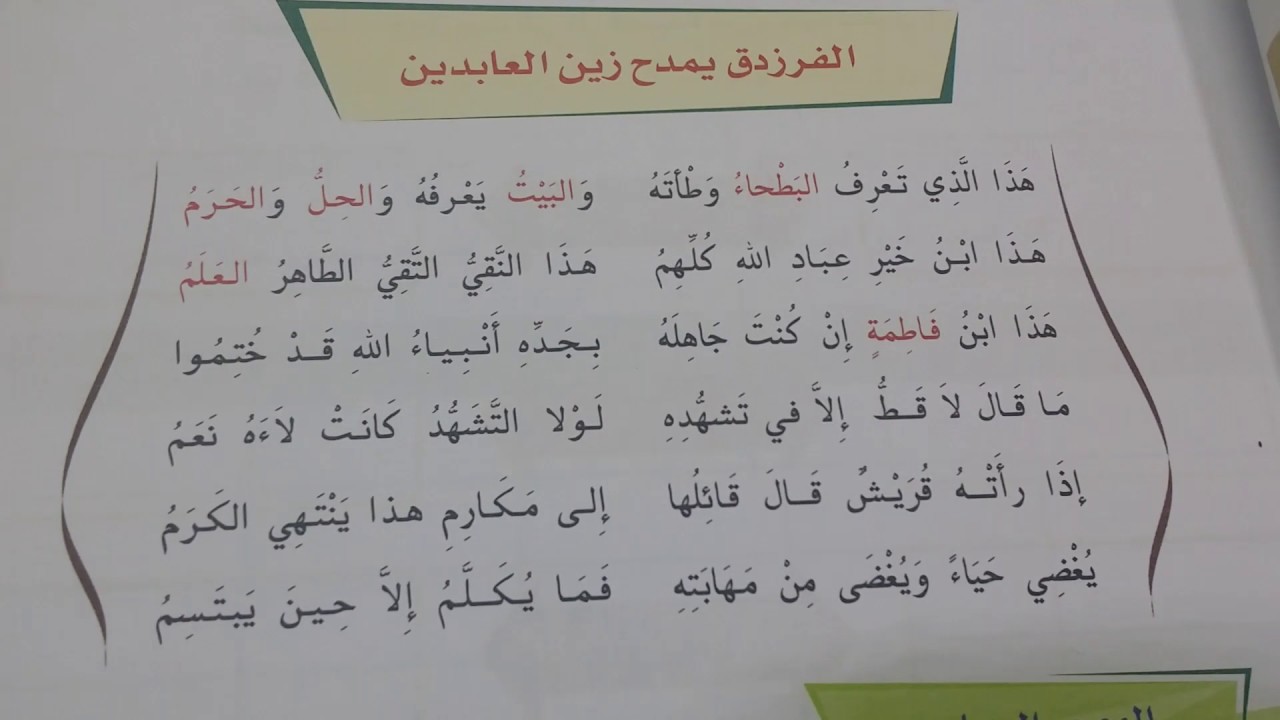 الفرزدق يمدح زين العابدين
هَذَا الَّذِي تَعْرِفُ البَطْحاءُ وَطْأَتَهُ وَالبَيْتُ يَعْرفُهُ وَالحِلُّ وَالحَرَمُ
هَذَا ابْنُ خَيْرِ عِبَادِ اللهِ كُلِّهِمُ هَذَا النَّقِيُّ التَّقِيُّ الطَّاهِرُ العَلَمُ
هَذَا ابْنُ فَاطِمَةٍ إِنْ كُنْتَ جَاهِلَهُ بِجَدِّهِ أَنْبِياءُ اللهِ قَدْ خُتِمُوا
مَا قَالَ لاَ قَطُّ إِلاَّ في تَشهُّدِهِ لَوْلا التَّشَهُّدُ كَانَتْ لاَءَهُ نَعَمُ
إِذَا رأَتْهُ قُرَيْشٌ قَالَ قَائِلُها إِلى مَكَارِمِ هذا يَنْتَهِي الكَرَمُ
يُغْضِي حَيَاءً وَيُغْضَى مِنْ مَهَابَتِهِ فَمَا يُكَلَّمُ إِلاَّ حِينَ يَبتَسِمُ